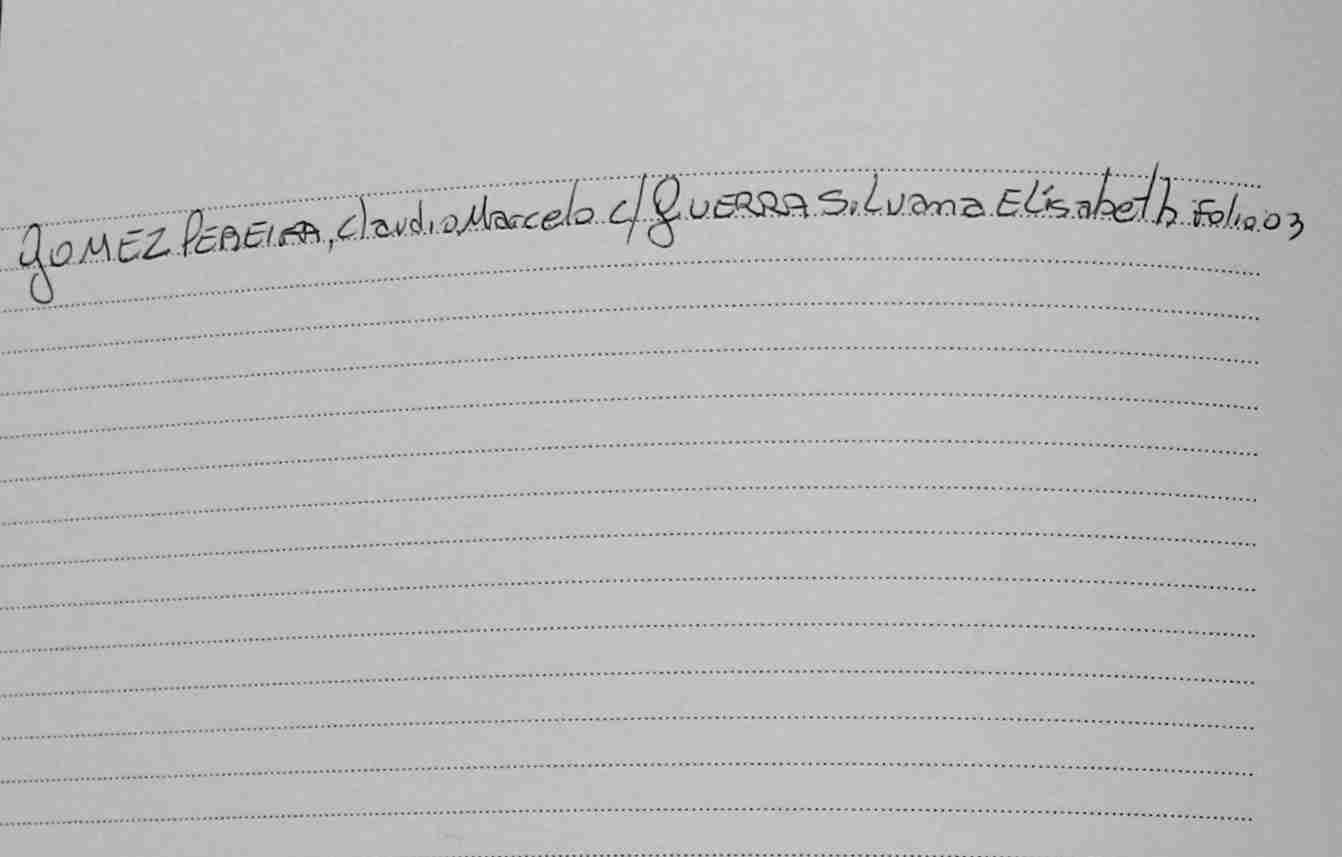 GOMEZ PEREIRA, Claudio Marcelo c/ GUERRA Silvana Elisabeth Folio 03